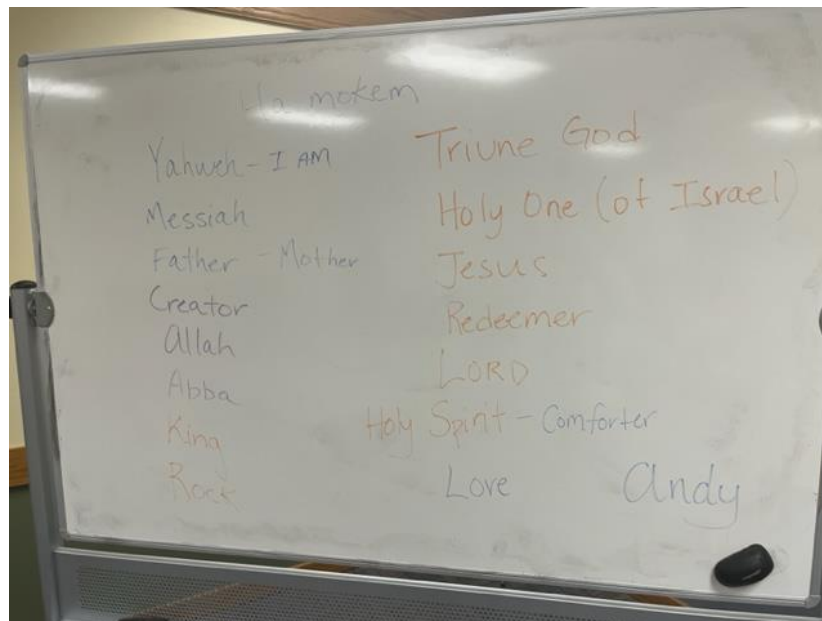 Ha mokem
Yahweh - I AM
Messiah
Father - Mother
Creator
Allah
Abba
King
Rock
Triune God
Holy One (of Israel)
Jesus
Redeemer
LORD
Holy Spirit - Comforter
Love
Andy